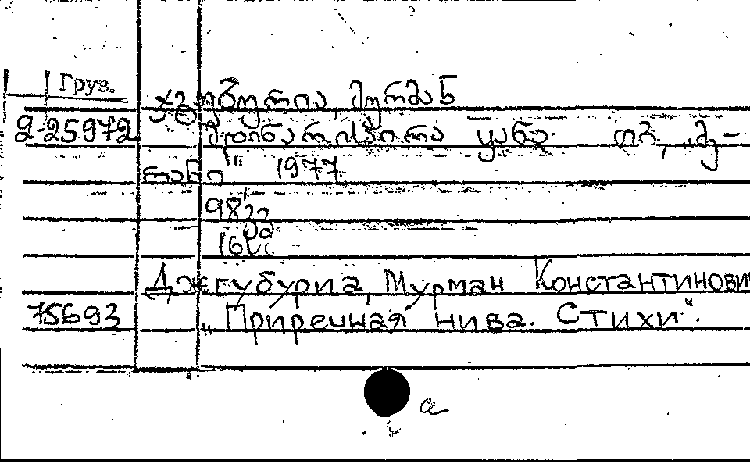 Груз.
ჯგუბურია, მურმან
2-25972 მდინარისპირა ყანა. თბ, „მე-
რანი" 1977
98გვ
16
Джгубуриа, Мурман Константинович
75693 „Приречная нива. Стихи".
а